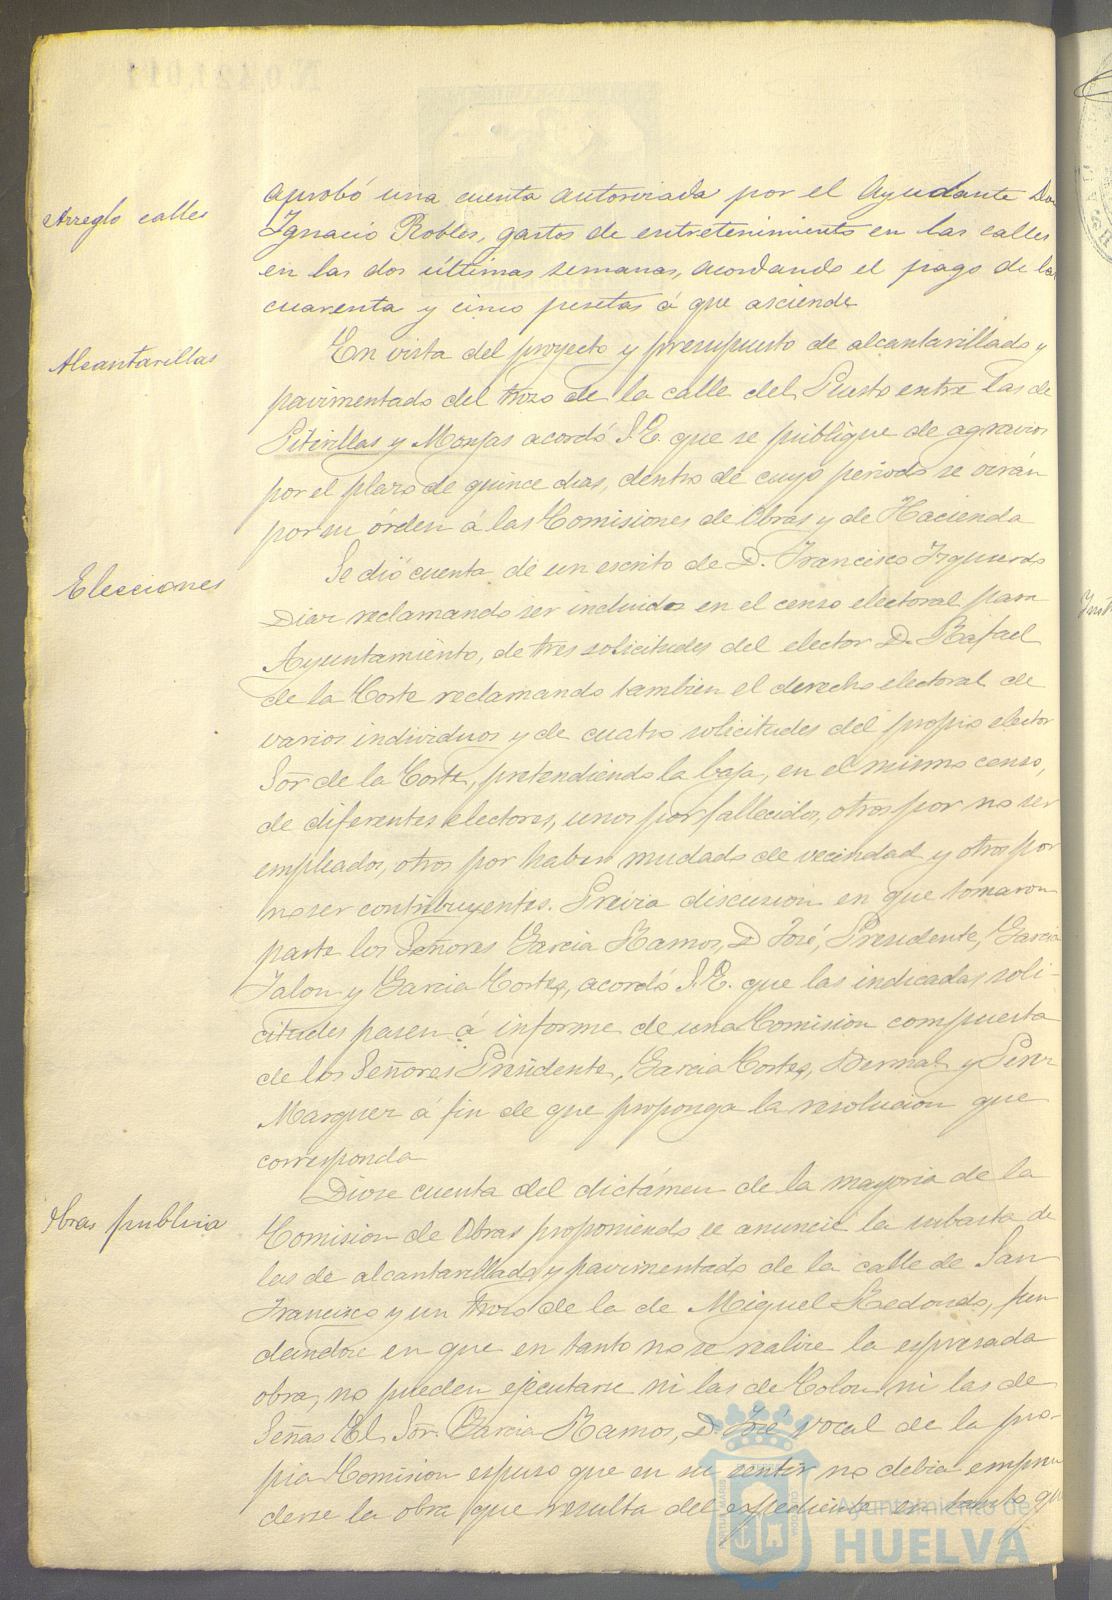 Arreglo calles
aprobó una cuenta autorizada por el Ayudante Don
Ignacio Robles, gastos de entretenimiento en las calles
en las dos últimas semanas, acordando el pago de las
cuarenta y cinco pesetas á que asciende
Alcantarillas
En vista del proyecto y presupuesto de alcantarillado y
pavimentado del trozo de la calle del Puerto entre las de
Pitirillas y Monjas acordó S.E. que se publique de agravios
por el plazo de quince dias, dentro de cuyo periodo se oirán
por su órden á las Comisiones de Obras y de Hacienda
Elecciones
Se dió cuenta de un escrito de D. Francisco Izquierdo
Diaz reclamando ser incluidos en el censo electoral para
Ayuntamiento, de tres solicitudes del elector D. Rafael
de la Corte reclamando tambien el derecho electoral de
varios individuos y de cuatro solicitudes del propio elector
Sor de la Corte, pretendiendo la baja, en el mismo censo,
de diferentes electores, unos por fallecidos, otros por no ser
empleados, otros por haber mudado de vecindad y otros por
no ser contribuyentes. Previa discusion en que tomaron
parte los Señores Garcia Ramos, D José, Presidente, Garcia
Jalon y Garcia Cortes, acordó S.E. que las indicadas soli-
citudes pasen á informe de una Comision compuesta
de los Señores Presidente, Garcia Cortes, Bernal y Perez
Marquez á fin de que proponga la resolucion que
corresponda
Obras publica
Diose cuenta del dictámen de la mayoria de la
Comision de Obras proponiendo se anuncie la subasta de
las de alcantarillado y pavimentado de la calle de San
Francisco y un trozo de la de Miguel Redondo, fun
dandose en que en tanto no se realize la espresada
obra, no pueden ejecutarse ni las de Colon ni las de
Señas El Sor. Garcia Ramos, D. José vocal de la pro-
pia Comision espuso que en su sentir no debia empren
derse la obra que resulta del expediente en tanto que
Ayuntamiento de
HUELVA